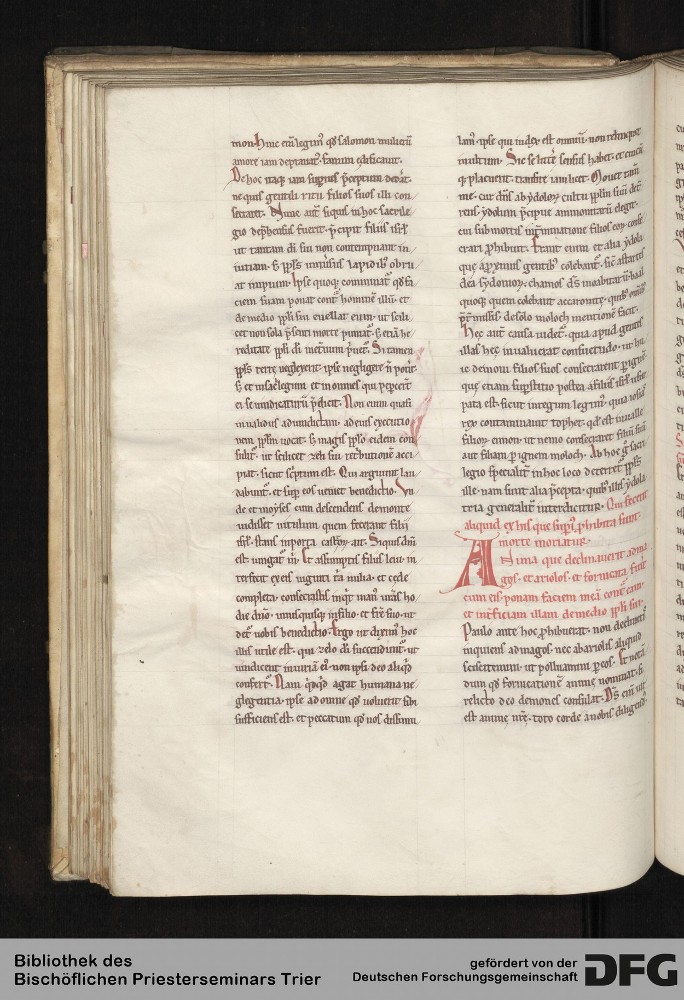 mon. hinc etiā legimꝰ qd̄ salomon mulierū
amore iam deprauatꝰ. fanum edificauit.
De hoc itaq; iam supius p̄ceptum dederat.
ne quis gentili ritu filios suos illi con
secraret. Nunc aut̄ siquis in hoc sacrile
gio dep̄hensus fuerit. p̄cipit filiis isrl̓
ut tantam di sui non contempnant in
iuriam. s; ppl̓s uniūsus lapidibꝰ obru
at impium. Ipse quoq; cominatꝰ qd̄ fa
ciem suam ponat cont̄ hominē illū. et
de medio ppli sui euellat eum. ut scili
cet non sola p̄senti morte puniat̄. s; etiā he
reditate ppli di
Si tamen
ppl̓s terre neglexerit. ipse negligere n̄ potit.
s; et in sac̓legum et in omnes qui peperc̄t
ei se uindicaturū p̄dicit. Non enim quasi
inualidus ad uindictam. ad eius executio
nem ppl̓m uocat. s; magis ppl̓o eidem con
sulit. ut scilicet zeli sui retributionē acci
piat. sicut sc̓ptum est. Qui arguunt lau
dabunt̄. et sup̄ eos ueniet benedictio. Vn
de et moyses cum descendens de monte
uidisset uitulum quem fecerant filii
isrl̓. stans in porta castror̄. ait. Siquis dn̄i
est. iungat̄ m̓. Et assumptis filiis leui. in
terfecit ex eis uiginti t̄a milia. et cede
completa. consecrastis inqt̓ manꝰ urās ho
die dn̄o. unusquisq; in filio. et fr̄e suo. ut
det̄ uobis benedictio. Ergo ut diximꝰ hoc
illis utile est. qui zelo di succendunt̄. ut
uindicent iniuriā eiꝰ. non ipsi deo aliqd̓
confert̄. Nam qd̓qd̓ agat humana ne
glegentia. ipse ad omne qd̄ uoluerit sibi
sufficiens est. et peccatum qd̄ nos dissimu
lamꝰ. ipse qui iudex est omniū. non relinquet
inultum. Sic se
sensus habet. et
q; placuerit. transire iam licet. Mouet tam̄
me. cur dn̄s ab ydolor̄ cultu ppl̓m suū
rens. ydolum p̄cipue ammonitarū degit.
cui sub mortis int̄minatione filios eor̄ conse
crari phibuit. Erant enim et alia ydola
que a pximis gentibꝰ colebant̄. sic̄ astartes
dea sydonior̄. chamos ds̄ moabitarū. baal
quoq; quem colebant accaronite. quibꝰ omnibꝰ
p̄t̄missis. de solo moloch mentionē facit.
Hec aut̄ causa uidet̄. quia apud gentes
illas hec inualuerat consuetudo. ut hu
ic demoni filios suos consecrarent p ignē.
que etiam supstitio postea a filiis isrl̓ usur
pata est. sicut in regum legimꝰ. quia iosias
rex contaminauit tophet. qd̄ est in ualle
filior̄ ennon. ut nemo consecraret filiū suū
aut filiam p ignem moloch. Ab hoc g̓ sacri
legio specialit̓ in hoc loco deterret̄ ppl̓s
ille. nam sunt alia p̄cepta. quibꝰ illis ydola
tria generalit̓ interdicitur. Qui fecerit
aliquid ex his que supiꝰ phibita sunt.
morte moriatur.
Anima que declinauerit ad ma
gos. et ariolos. et fornicata fuit̓
cum eis. ponam faciem meā cont̄ eam.
et int̄ficiam illam de medio ppli sui.
Paulo ante hoc phibuerat. non declinetis
inquiens ad magos. nec ab ariolis aliquid
sciscitemini. ut polluamini p eos. Et notan
dum qd̄ fornicationē anime nominat. si
relicto deo demones consulat. Ds̄ enim uir
est anime nr̄e. toto corde a nobis diligendꝰ
Bibliothek des
Bischöflichen Priesterseminars Trier
gefördert von der
Deutschen Forschungsgemeinschaft
DFG